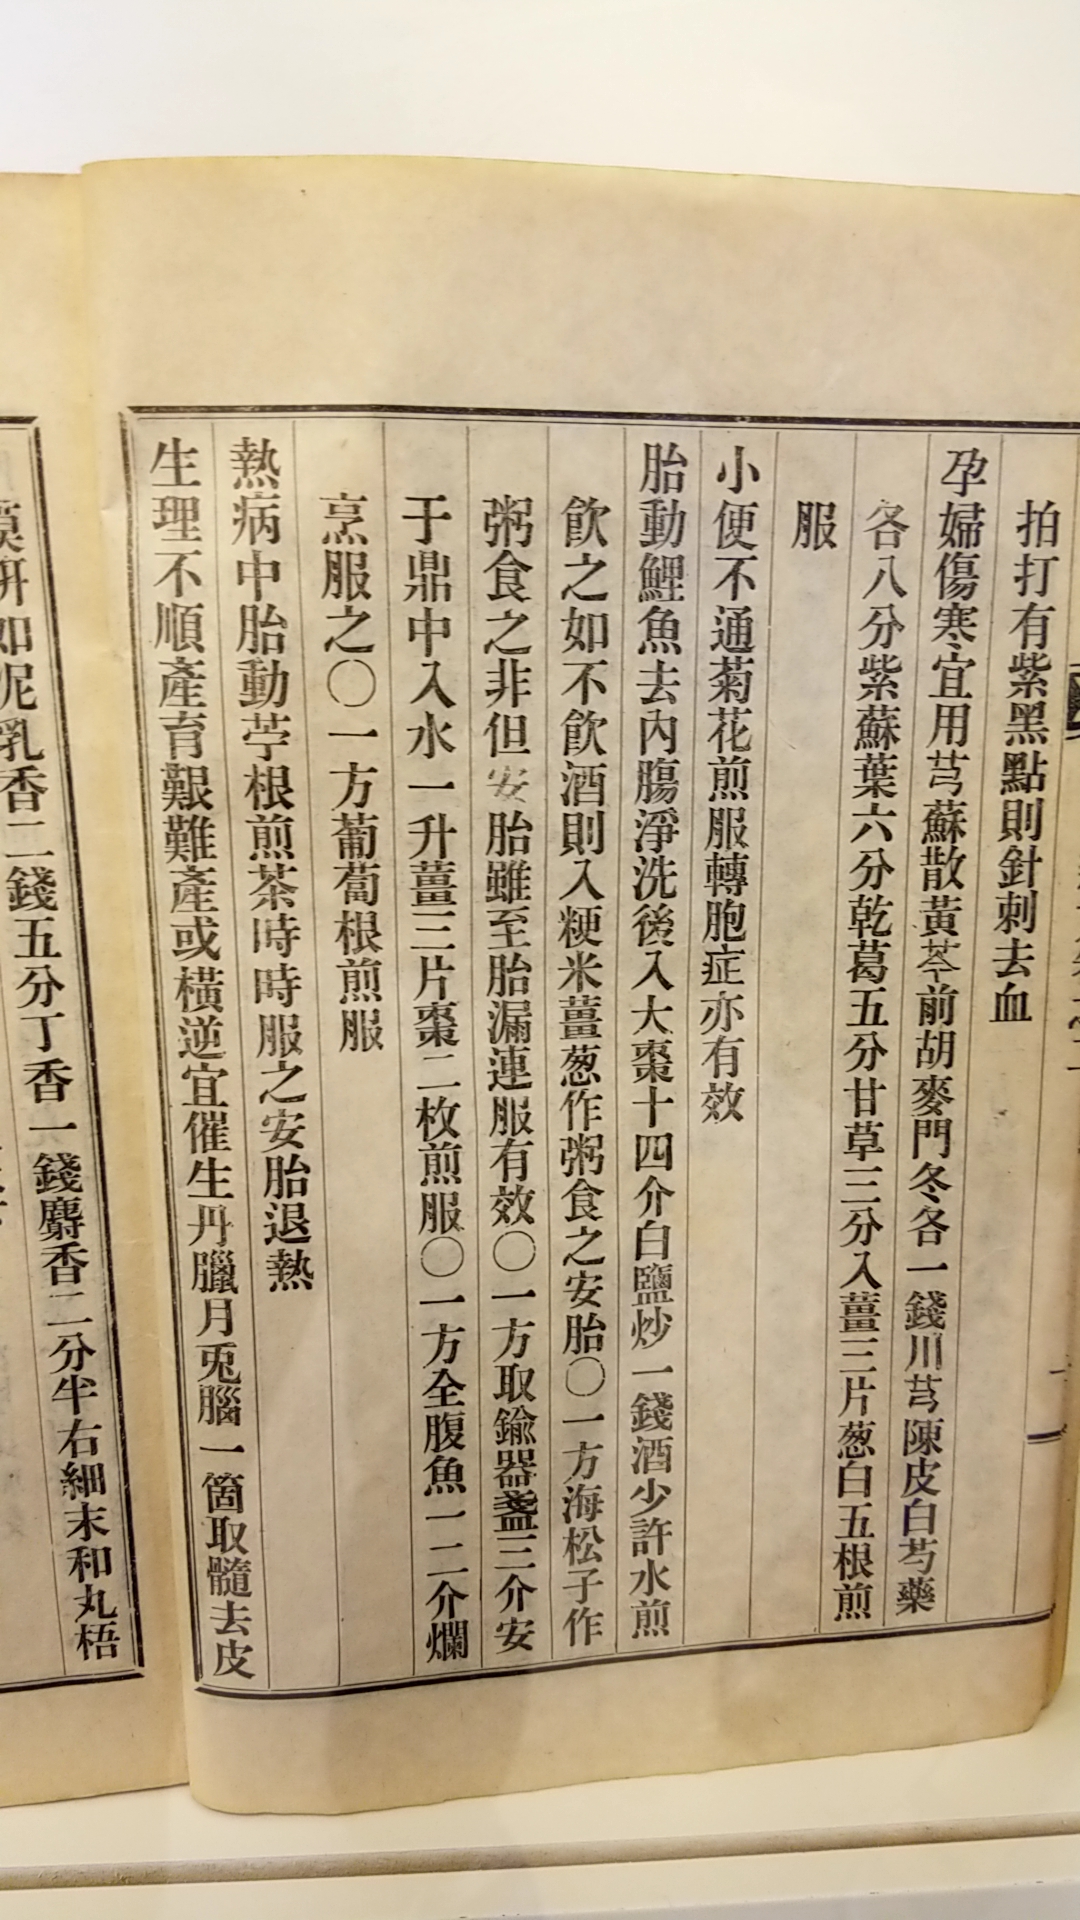 拍打有紫黑點則針刺去血
孕婦傷寒宜用芎蘇散黃芩前胡麥門冬各一錢川芎陳皮白芍藥
各八分紫蘇葉六分乾葛五分甘草三分入薑三片葱白五根煎
服
小便不通菊花煎服轉胞症亦有效
胎動鯉魚去內膓淨洗後入大棗十四介白鹽炒一錢酒少許水煎
飮之如不飮酒則入粳米薑葱作粥食之安胎〇一方海松子作
粥食之非但安胎雖至胎漏連服有效〇一方取鍮器盖三介安
于鼎中入水一升薑三片棗二枚煎服〇一方全腹魚一二介爛
烹服之〇一方葡萄根煎服
熱病中胎動苧根煎茶時時服之安胎退熱
生理不順產育艱難產或橫逆宜催生丹臘月兎腦一箇取髓去皮
硏如泥乳香二錢五分丁香一錢麝香二分半右細末和丸梧